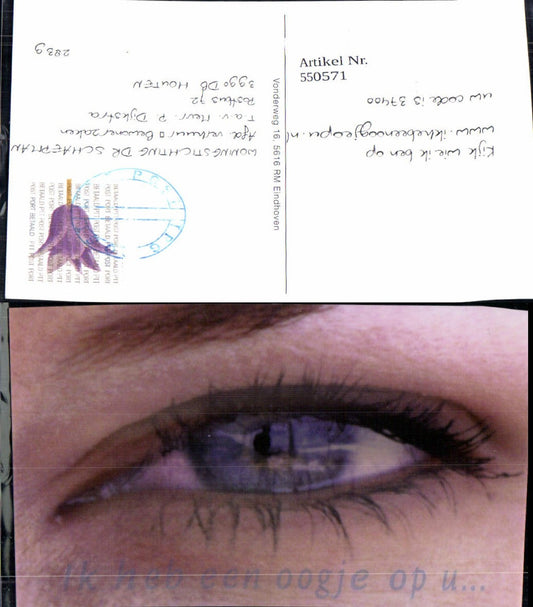 Artikel Nr.
550571
Kijk wie ik ben op
www.ikhebeenoogjeopu.nl
uw code is 37400
Vonderweg 16, 5616 RM Eindhoven
WONINGSTICHTING DR SCHAEPMAN
Afd. verhuur
Bewonerszaken
T.a.v. Heer. P. Dijkstra
Postbus 72
3990 DB HOUTEN
283g
PORT BETAALD
Ik heb een oogje op u...